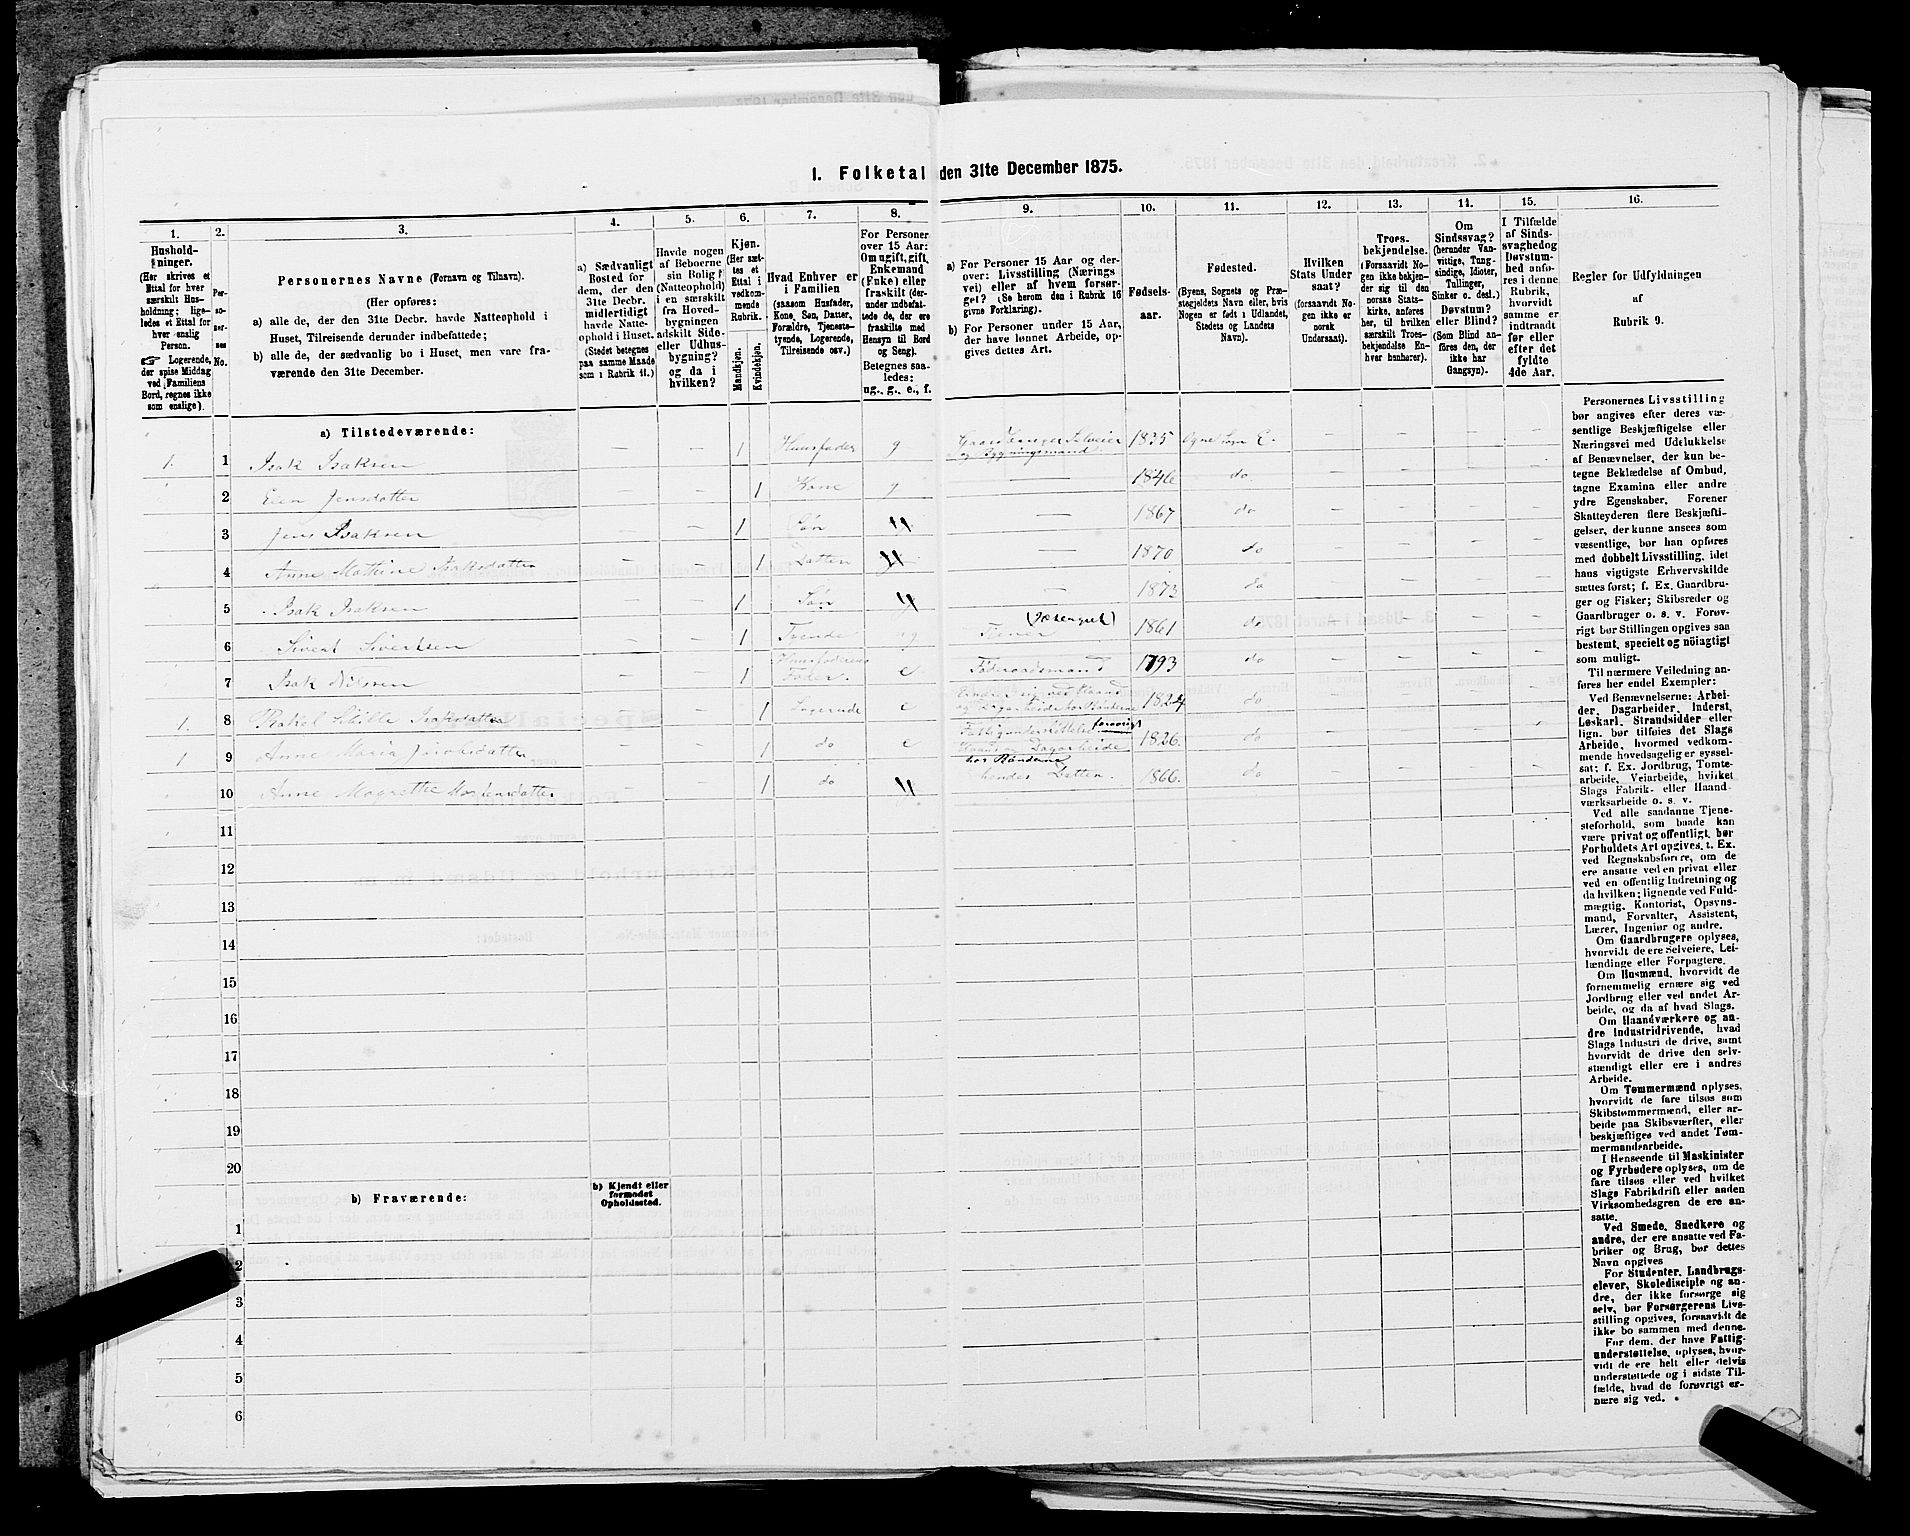 1. Folketal den 31te December 1875.
1. 2. 3. 4. 5. 6. 7. 8. 9. 10. 11. 12. 13. 14. 15. 16.
Hushold-
ninger.
(Her skrives et
Ettal for hver
særskilt Hus-
holdning; lige-
ledes et Ettal for
hver enslig
Person.
☞ Logerende,
der spise Middag
ved Familiens
Bord, regnes ikke
som enslige).
Per-
so-
ner-
nes
No.
Personernes Navne (Fornavn og Tilnavn).
(Her opføres:
a) alle de, der den 31te Decbr. havde Natteophold i
Huset, Tilreisende derunder indbefattede;
b) alle de, der sædvanlig bo i Huset, men vare fra-
værende den 31te December.
a) Sædvanligt
Bosted for
dem, der den
31te Decbr.
midlertidigt
havde Natte-
ophold i Huset.
(Stedet betegnes
paa samme Maade
som i Rubrik 11.)
Havde nogen
af Beboerne
sin Bolig
(Natteophold)
i en særskilt
fra Hoved-
bygningen
adskilt Side-
eller Udhus-
bygning?
og da i
hvilken?
Kjøn.
(Her sæt-
tes et
Ettal i
vedkom-
mende
Rubrik.
Mandkjøn.
Kvindekjøn.
Hvad Enhver er
i Familien
(saasom Husfader,
Kone, Søn, Datter,
Forældre, Tjeneste-
tyende, Logerende,
Tilreisende osv.)
For Personer
over 15 Aar:
Om ugift, gift,
Enkemand
(Enke) eller
fraskilt (der-
under indbefat-
tede de, der ere
fraskilte med
Hensyn til Bord
og Seng).
Betegnes saa-
ledes:
ug., g., e., f.
a) For Personer 15 Aar og der-
over: Livsstilling (Nærings
vei) eller af hvem forsør-
get? (Se herom den i Rubrik 16
givne Forklaring).
b) For Personer under 15 Aar,
der have lønnet Arbeide, op-
gives dettes Art.
Fødsels-
aar.
Fødested.
(Byens, Sognets og Præ-
stegjeldets Navn eller, hvis
Nogen er født i Udlandet,
Stedets og Landets
Navn).
Hvilken
Stats Under
saat?
(forsaavidt No-
gen ikke er
norsk
Undersaat).
Troes-
bekjendelse.
(Forsaavidt No-
gen ikke bekjen-
der sig til den
norske Stats-
kirke, anføres
her, til hvilken
særskilt Troes-
bekjendelse En-
hver henhører).
Om
Sindssvag?
(herunder Van-
vittige, Tung-
sindige, Idioter,
Tullinger,
Sinker o. desl.)
Døvstum?
eller Blind?
(Som Blind an-
føres den, der
ikke har
Gangsyn).
I Tilfælde
af Sinds-
svaghed og
Døvstum-
hed anfø-
res i denne
Rubrik,
hvorvidt
samme er
indtraadt
før eller
efter det
fyldte
4de Aar.
Regler for Udfyldningen
af
Rubrik 9.
a) Tilstedeværende:
1. 1 Isak Isaksen — — 1 Huusfader g Gaardbruger Selveier og Bygningsmand 1835 Ogne Sogn E. — — — —
2 Elen Jensdatter — — 1 Kone g — 1846 do — — — —
3 Jens Isaksen — — 1 Søn — 1867 do — — — —
4 Anne Mathine Isaksdatter — — 1 Datter — 1870 do — — — —
5 Isak Isaksen — — 1 Søn — 1873 do — — — —
6 Sivert Sivertsen — — 1 Tyende Tjener 1861 do — — — —
7 Isak Nilsen — — 1 Huusfaderens Fader. e Føderaadsmand 1793 do — — — —
1. 8 Rakel Sibille Isaksdatter — — 1 Logerende e 1824 do — — — —
1 9 Anne Maria Jacobsdatter — — 1 do e Fattigunderstøttelse forøvrigt Haand og Dagarbeide hos Bønderne 1826. do — — — —
10 Anne Magrethe — — 1 do hendes Datter. 1866. do — — — —
11
12
13
14
15
16
17
18
19
20
b) Fraværende:
b) Kjendt eller
formodet
Opholdssted.
1
2
3
4
5
6
Personernes Livsstilling
bør angives efter deres væ-
sentlige Beskjæftigelse eller
Næringsvei med Udelukkelse
af Benævnelser, der kun be-
tegne Beklædelse af Ombud,
tagne Examina eller andre
ydre Egenskaber. Forener
Skatteyderen flere Beskjæfti-
gelser, der kunne ansees som
væsentlige, bør han opføres
med dobbelt Livsstilling, idet
hans vigtigste Erhvervskilde
sættes først; f. Ex. Gaardbru-
ger og Fisker; Skibsreder og
Gaardbruger o. s. v. Forøv-
rigt bør Stillingen opgives saa
bestemt, specielt og nöiagtigt
som muligt.
Til nærmere Veiledning an-
føres her endel Exempler:
Ved Benævnelserne: Arbei-
der, Dagarbeider, Inderst,
Løskarl, Strandsidder eller
lign. bør tilføies det Slags
Arbeide, hvormed vedkom-
mende hovedsagelig er syssel-
sat; f. Ex. Jordbrug, Tomte-
arbeide, Veiarbeide, hvilket
Slags Fabrik- eller Haand-
værksarbeide o. s. v.
Ved alle saadanne Tjene-
steforhold, som baade kan
være privat og offentligt, bør
Forholdets Art opgives, t. Ex.
ved Regnskabsførere, om de
ere ansatte ved en privat eller
ved en offentlig Indretning og
da hvilken; lignende ved Fuld-
mægtig, Kontorist, Opsyns-
mand, Forvalter, Assistent,
Lærer, Ingeniør og andre.
Om Gaardbrugere oplyses,
hvorvidt de ere Selveiere, Lei-
lændinge eller Forpagtere.
Om Husmænd, hvorvidt de
fornemmelig ernære sig ved
Jordbrug eller ved andet Ar-
beide, og da af hvad Slags.
Om Haandværkere og an-
dre Industridrivende, hvad
Slags Industri de drive, samt
hvorvidt de drive den selv-
stændigt eller ere i andres
Arbeide.
Om Tømmermænd oplyses,
hvorvidt de fare tilsøs som
Skibstømmermænd, eller ar-
beide paa Skibsværfter, eller
beskjæftiges ved andet Tøm-
mermandsarbeide.
I Henseende til Maskinister
og Fyrbødere oplyses, om de
fare tilsøs eller ved hvilket
Slags Fabrikdrift eller anden
Virksomhedsgren de ere an-
satte.
Ved Smede, Snedkere og
andre, der ere ansatte ved Fa-
briker og Brug, bør dettes
Navn opgives
For Studenter, Landbrugs-
elever, Skoledisciple og an-
dre, der ikke forsørge sig
selv, bør Forsørgerens Livs-
stilling opgives, forsaavidt de
ikke bo sammen med denne.
For dem, der have Fattig-
understøttelse, oplyses, hvor-
vidt de ere helt eller delvis
understøttede og i sidste Til-
fælde, hvad de forøvrigt er-
nære sig ved.